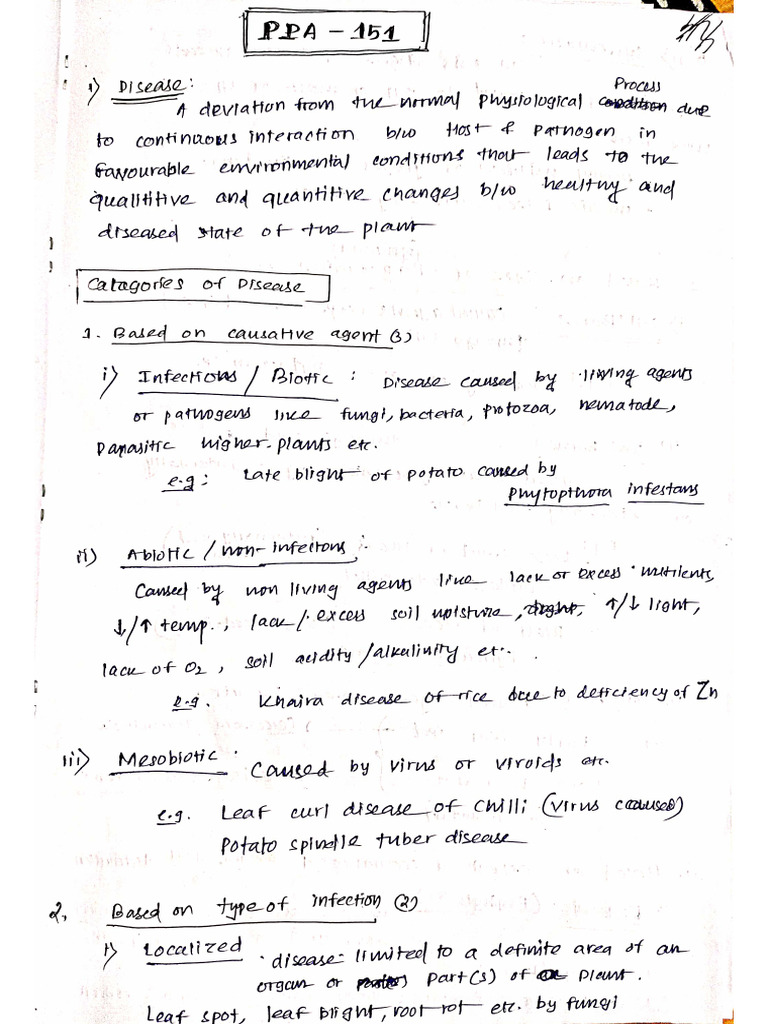 PPA - 151
1) Disease:
Process
A deviation from the normal physiological condition due
to continuous interaction b/w Host & Pathogen in
favourable environmental conditions that leads to the
qualititive and quantitive changes b/w healthy and
diseased state of the plant
Catagories of Disease
1. Based on causative agent (3)
i) Infectious / Biotic : Disease caused by living agents
or pathogens like fungi, bacteria, protozoa, nematode,
parasitic higher plants etc.
e.g: Late blight of potato caused by
Phytopthora infestans
ii) Abiotic / non-infectious :
Caused by non living agents like lack or excess nutrients,
↓/↑ temp., lack/excess soil moisture, ↑/↓ light,
lack of O2, soil acidity/alkalinity etc.
e.g. Khaira disease of rice due to deficiency of Zn
iii) Mesobiotic : Caused by virus or viroids etc.
e.g. Leaf curl disease of chilli (virus caused)
Potato spindle tuber disease
2. Based on type of infection (2)
i) Localized disease: limited to a definite area of an
organ or part(s) of plant.
Leaf spot, leaf blight, root rot etc. by fungi